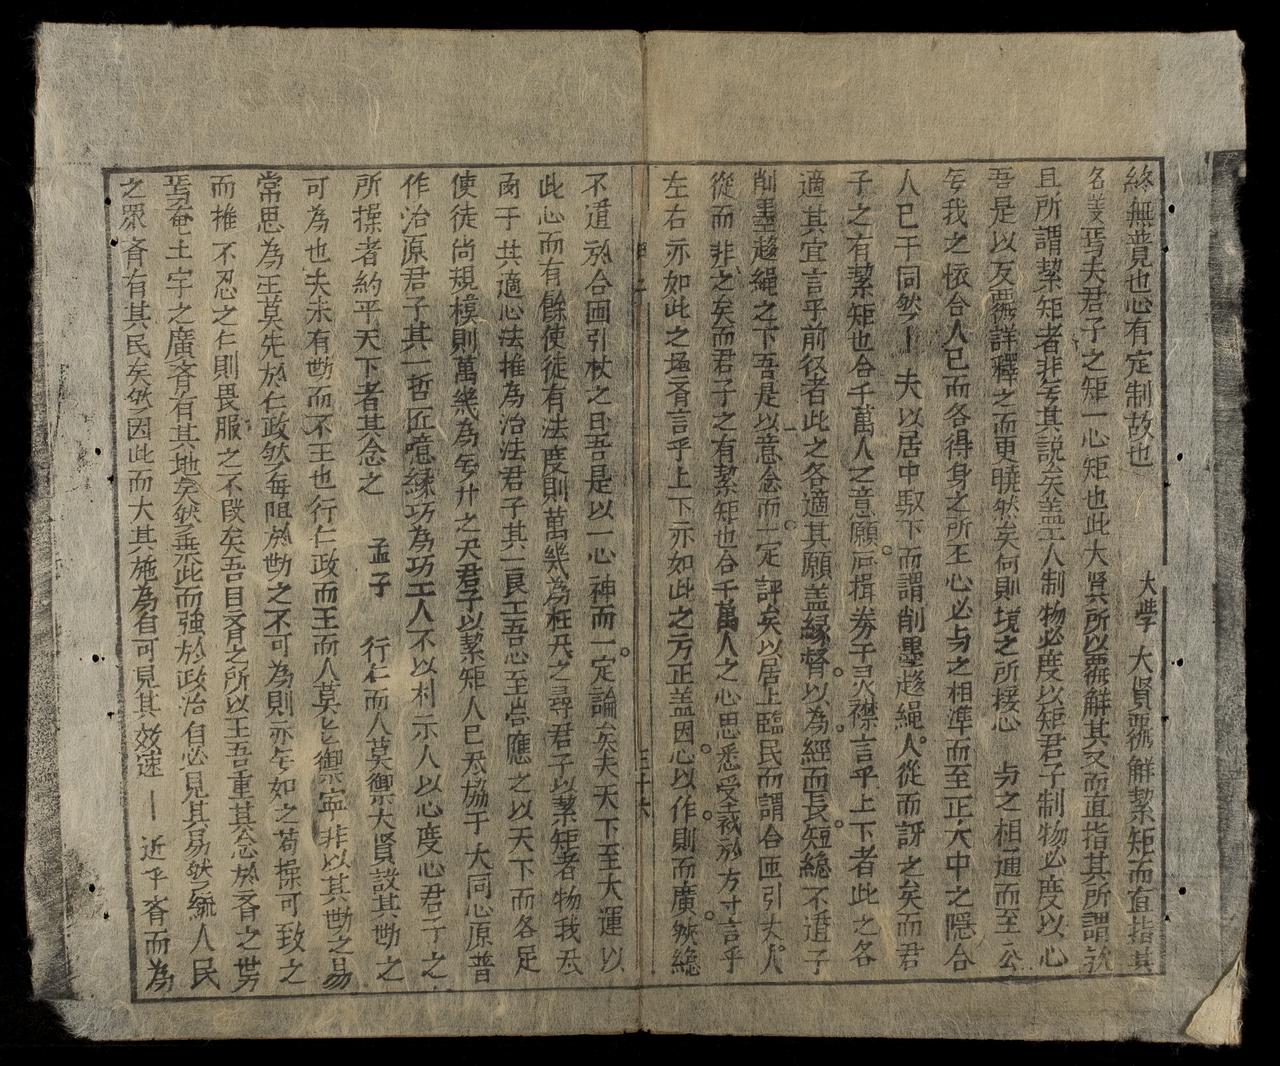 終無普覓也心有定制故也 大學 大賢覆解絜矩而直指其
名義焉夫君子之矩一心矩也此大賢所以覆解其义而直指其所謂欤
且所謂絜矩者非𫵈其説矣盖工人制物必度以矩君子制物必度以心
吾是以反覆詳釋之而更曉然矣何則境之所接心 与之相通而至公
𫵈我之恢合人已而各得身之所主心必与之相準而至正大中之隱合
人已于同然 夫以居中馭下而謂削墨趍繩人從而訝之矣而君
子之有絜矩也合千萬人之意願 揖券于 襟言乎上下者此之各
適其宜言乎前後者此之各適其願盖縁督以為經而長短緫不遁子
削墨趍繩之下吾是以意念而一定評矣以居上臨民而謂合匝引丈人
從而非之矣而君子之有絜矩也合千萬人之心思悉受全裁於方寸言乎
左右亦如此之 斉言乎上下亦如此之方正盖因心以作則而廣狹緫
不遁於合匝引杖之日吾是以一心神而一定論矣夫天下至大運以
此心而有餘使徒有法度則萬幾為枉夭之尋君子以絜矩者物我忝
甬于共適心法推為治法君子其一良工吾心至當應之以天下而各足
使徒尚規模則萬幾為𫵈廾之天君子以絜矩人已忝協于大同心原普
作治原君子其一哲匠噫練巧為巧工人不以利示人以心度心君子之
所操者約平天下者其念之 孟子 行仁而人莫禦大賢設其勢之
可為也夫未有勢而不王也行仁政而王而人莫之禦寧非以其勢之易
常思為王莫先於仁政然每阻於勢之不可為則亦𫵈如之苟操可致之
而推不忍之仁則畏服之不既矣吾目斉之所以王吾重其念於斉之势
焉奄土宇之廣斉有其地矣然乘此而強於政治自必見其易然統人民
之眾斉有其民矣然因此而大其施為自可見其效速 近乎斉而為
三十六